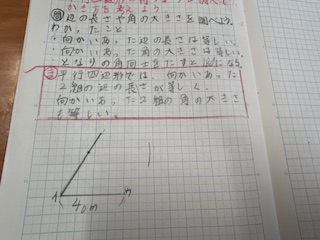 かき方を考えよう。
問 辺の長さや角の大きさを調べよう。
わかったこと
・向かいあった辺の長さは等しい。
・向かいあった角の大きさは等しい
となりの角同士をたすと180になる
ま 平行四辺形では、向かいあった
2組の辺の長さが等しく、
向かいあった2組の角の大きさ
も等しい。
4cm